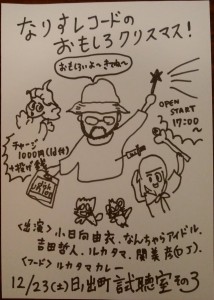 なりすレコードの
おもしろクリスマス!
おもしろいよ〜きてね〜
OPEN
START
17:00〜
チャージ
1000円(1d付)
+投げ銭
<出演> 小日向由衣、なんちゃらアイドル、
吉田哲人、ルカタマ、関美彦(DJ)、
<フード> ルカタマカレー
12/23(土)日ノ出町試聴室その3